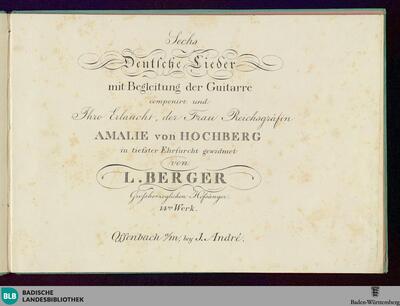 Sechs
Deutsche Lieder
mit Begleitung der Guitarre
componirt und
Ihro Erlaucht, der Frau Reichsgräfin
AMALIE von HOCHBERG
in tiefster Ehrfurcht gewidmet
von
L. BERGER
Grossherzoglichen Hofsänger.
14tes Werk.
Offenbach a/m, bey J. André.
BLB
BADISCHE
LANDESBIBLIOTHEK
Baden-Württemberg